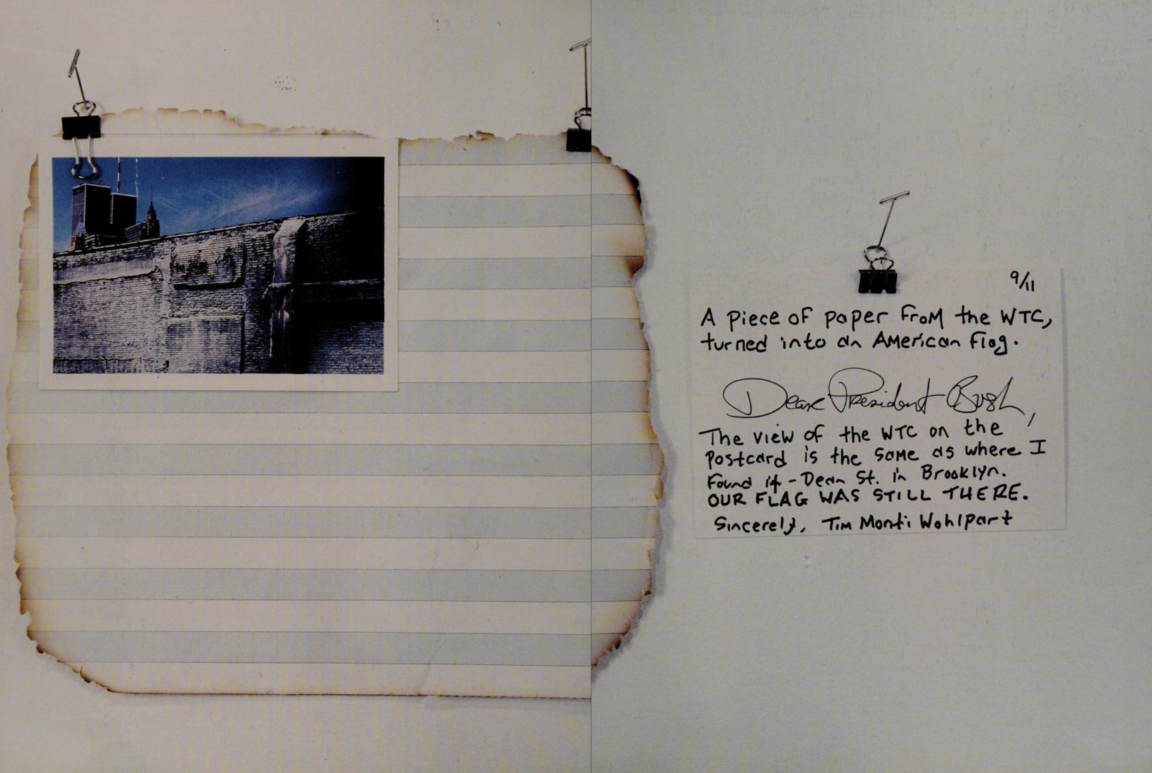 9/11
A piece of paper from the WTC,
turned into an American flag.
Dear President Bush,
The view of the WTC on the
Postcard is the same as where I
Found it - Dean St. in Brooklyn.
OUR FLAG WAS STILL THERE.
Sincerely, Tim Monti Wohlpart